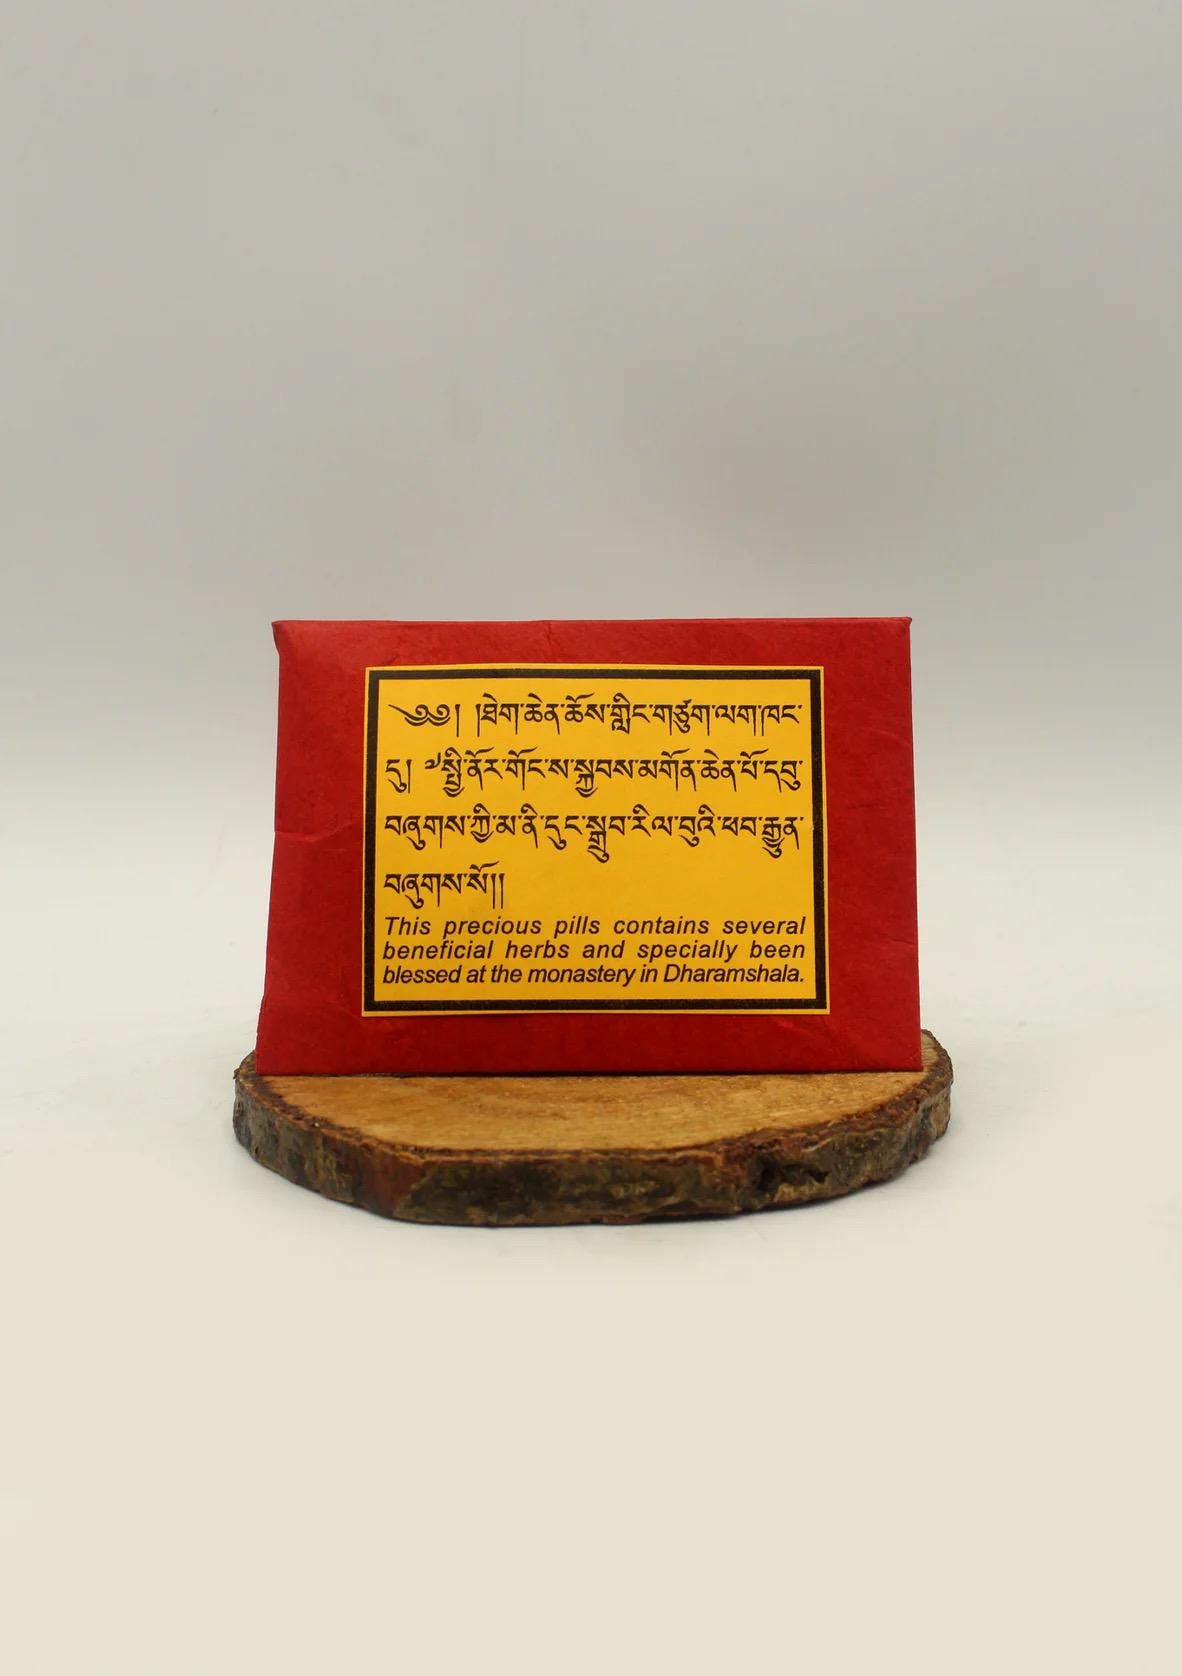 ༄༅། །ཐེག་ཆེན་ཆོས་གླིང་གཙུག་ལག་ཁང་
དུ། ༧སྤྱི་ནོར་གོང་ས་སྐྱབས་མགོན་ཆེན་པོ་དབུ་
བཞུགས་ཀྱི་མ་ནི་དུང་སྒྲུབ་རིལ་བུའི་ཕབ་རྒྱུན་
བཞུགས་སོ།།
This precious pills contains several
beneficial herbs and specially been
blessed at the monastery in Dharamshala.